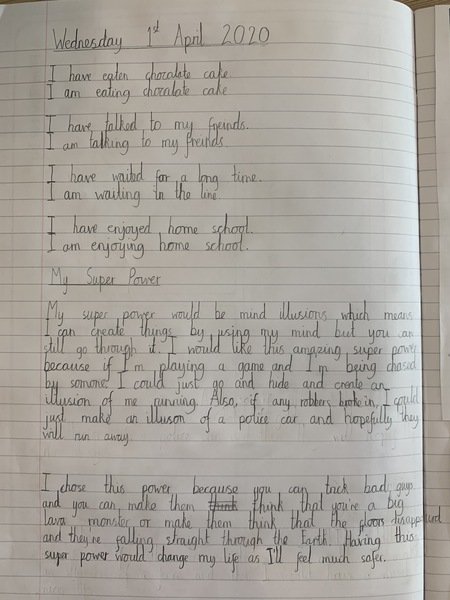 Wednesday 1st April 2020
I have eaten chocalate cake
I am eating chocalate cake
I have talked to my freinds.
I am talking to my freinds.
I have waited for a long time.
I am waiting in the line.
I have enjoyed home school.
I am enjoying home school.
My Super Power
My super power would be mind illusions which means
I can create things by using my mind but you can
still go through it. I would like this amazing super power
because if I'm playing a game and I'm being chased
by somone I could just go and hide and create an
illusion of me running. Also, if any robbers broke in, I could
just make an illuson of a police car and hopefully they
will run away.
I chose this power because you can trick bad guys
and you can make them think think that you're a big
lava monster or make them think that the floors disappeared
and they're falling straight through the Earth. Having this
super power would change my life as I'll feel much safer.